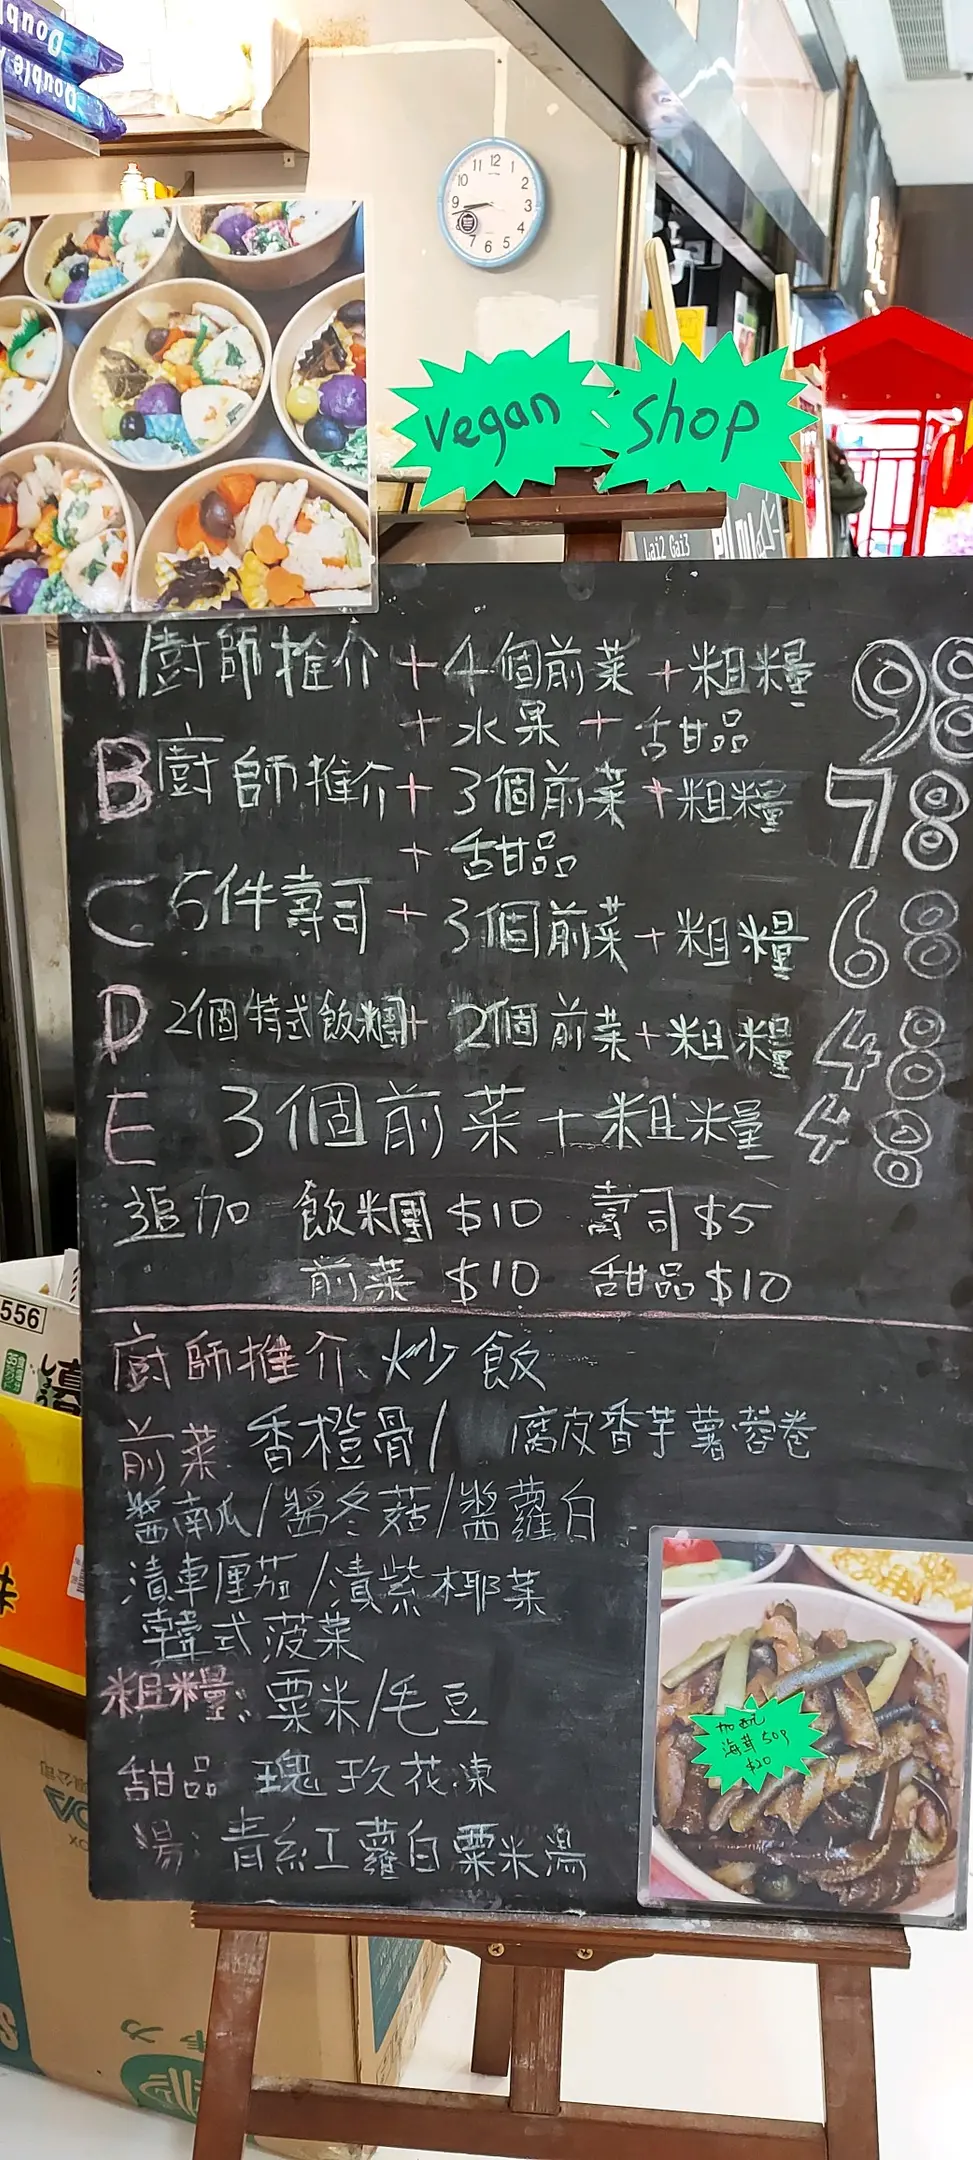 Double
Double
12
1
2
3
4
5
6
7
9
10
11
vegan shop
Lai2 Gai3
A 廚師推介 + 4個前菜 + 粗糧 98
+ 水果 + 甜品
B 廚師推介 + 3個前菜 + 粗糧 78
+ 甜品
C 5件壽司 + 3個前菜 + 粗糧 68
D 2個特式飯糰 + 2個前菜 + 粗糧 48
E 3個前菜 + 粗糧 48
追加 飯糰 $10 壽司 $5
前菜 $10 甜品 $10
廚師推介: 炒飯
前菜: 香橙骨/ 腐皮香芋薯蓉卷
醬南瓜/醬冬菇/醬蘿白
漬車厘茄/漬紫椰菜
韓式菠菜
粗糧: 粟米/毛豆
甜品: 瑰玫花凍
湯: 青紅蘿白粟米湯
加配
海茸 50g
$20
556